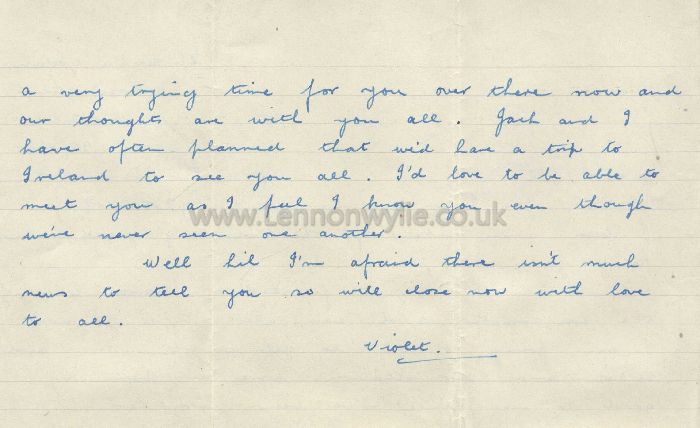 a very trying time for you over there now and
our thoughts are with you all. Jack and I
have often planned that we'd have a trip to
Ireland to see you all. I'd love to be able to
meet you as I feel I know you even though
www.Lennonwylie.co.uk
we've never seen one another.
Well Lil I'm afraid there isn't much
news to tell you so will close now with love
to all.
Violet.